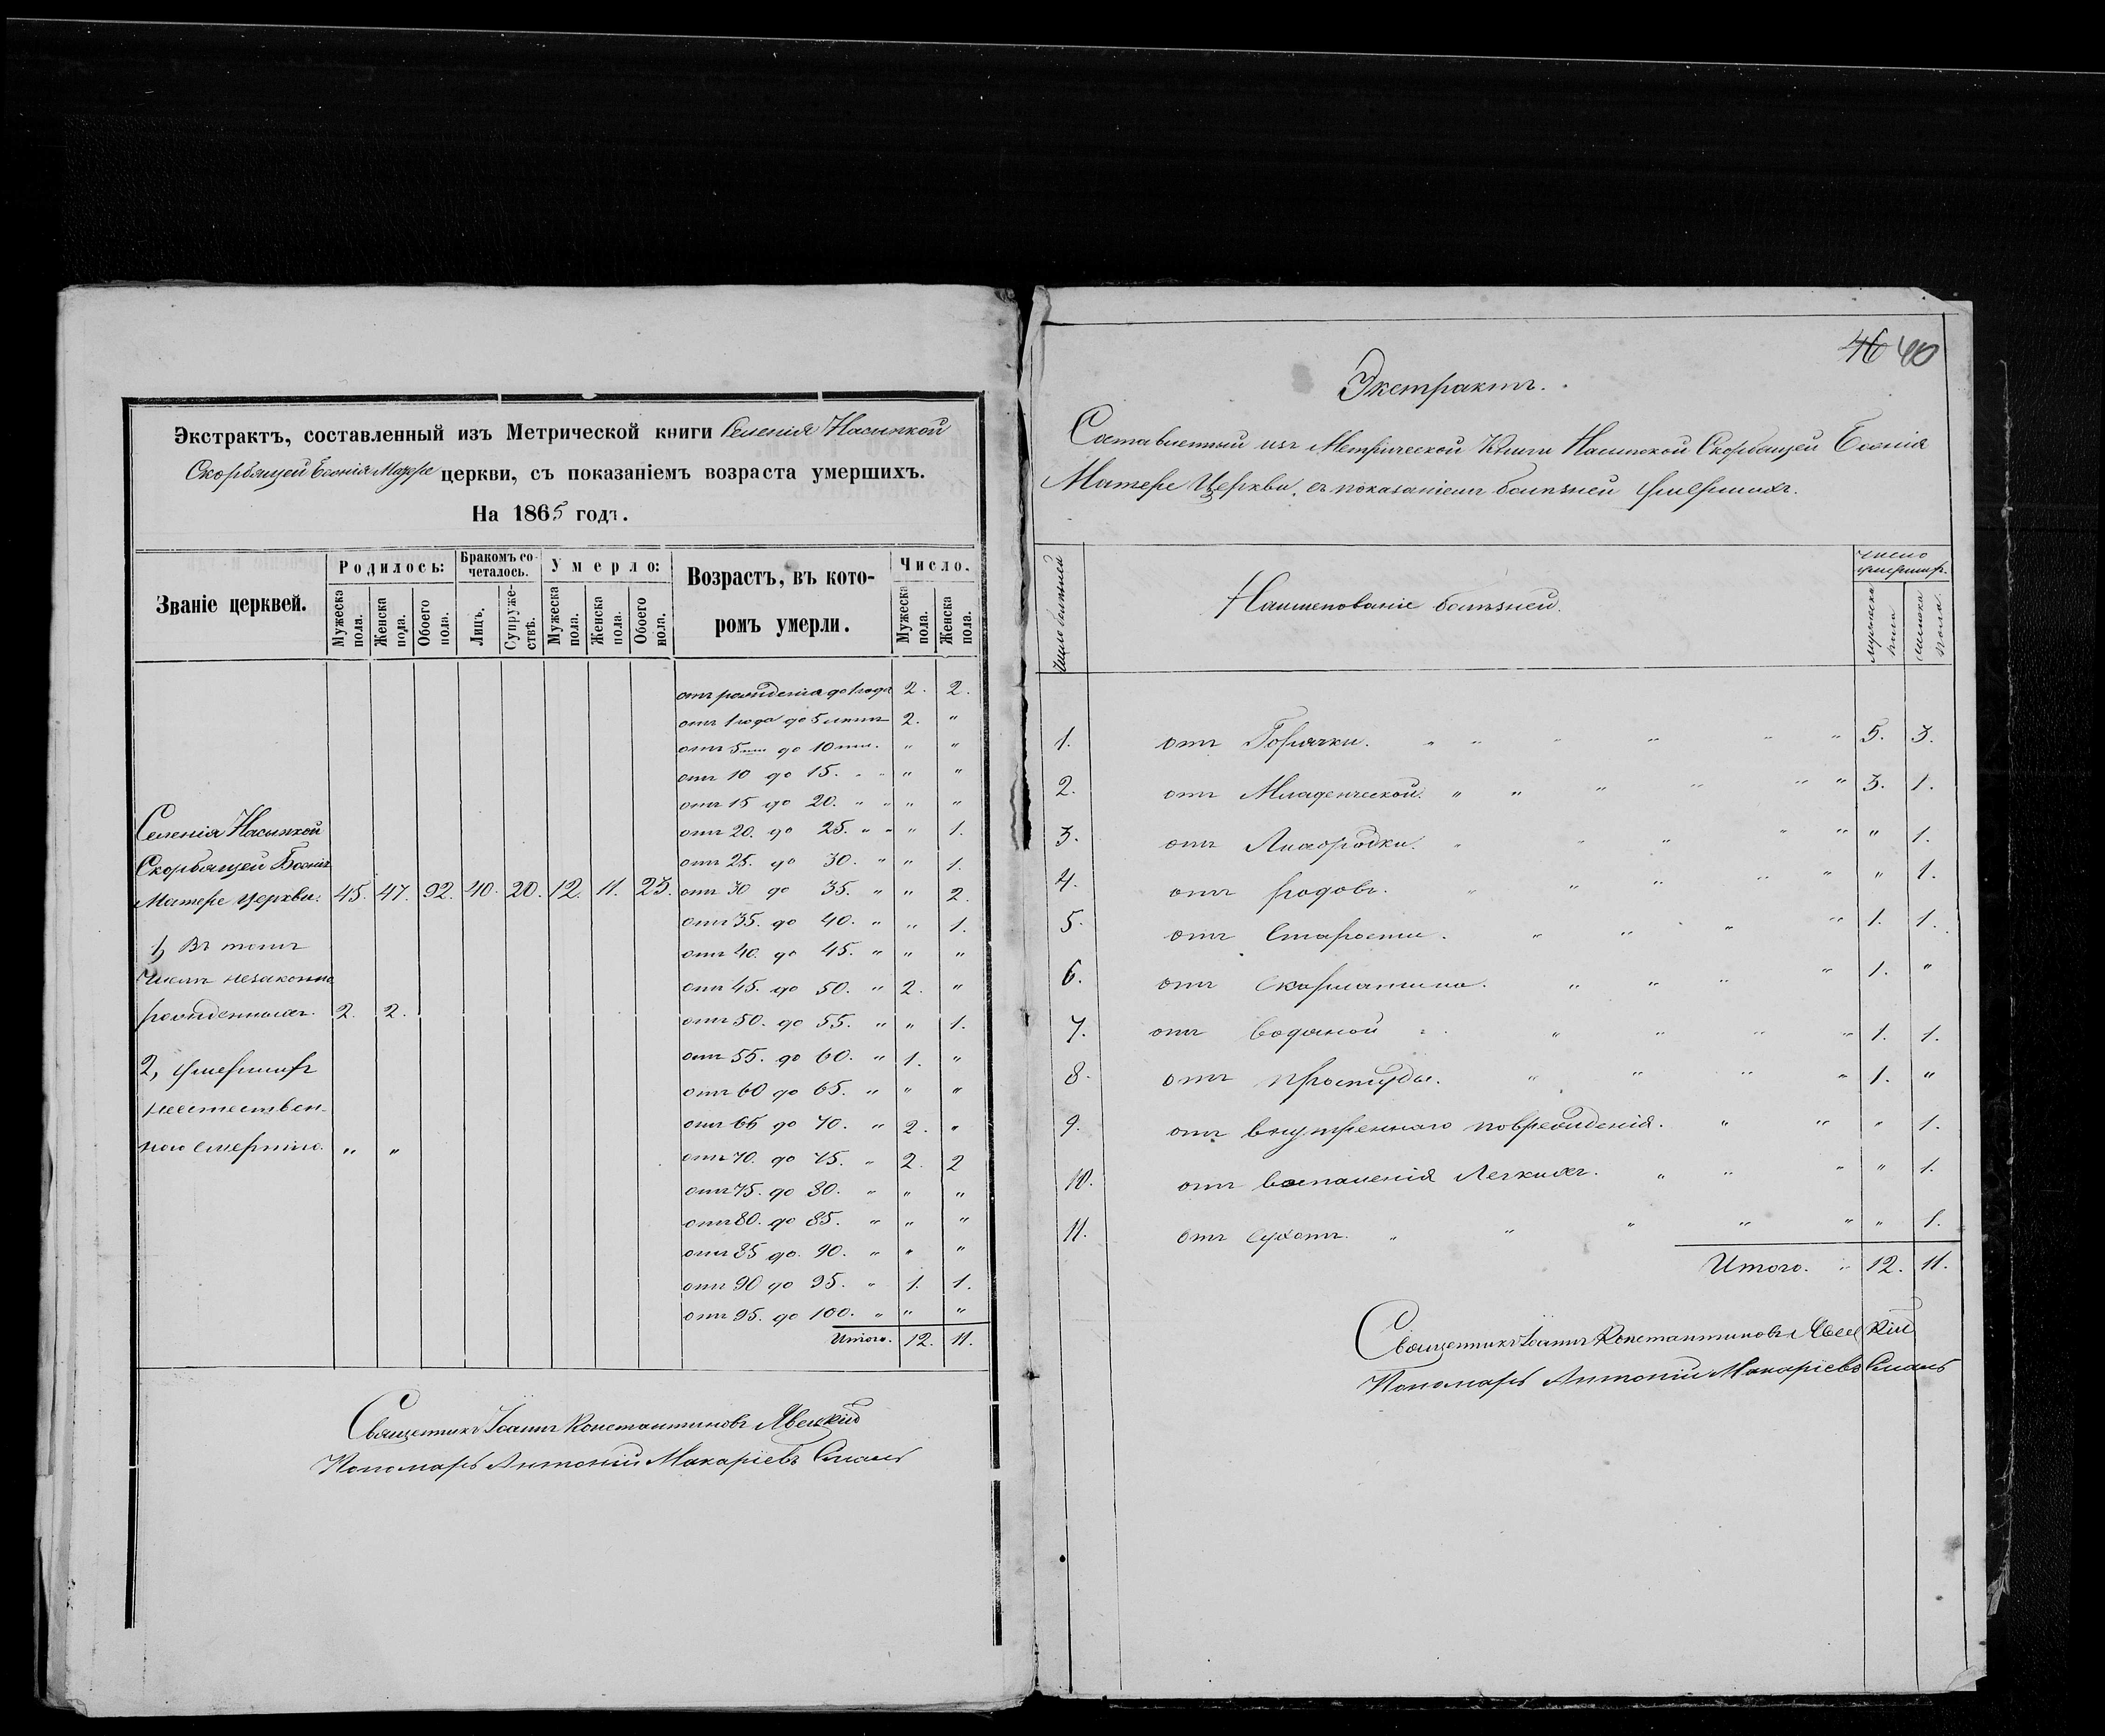 Экстрактъ, составленный изъ Метрической книги Селенія Насыпкой
Скорбящей Божія Матере церкви, съ показаніемъ возраста умершихъ.
На 1865 годъ.
Званіе церквей. Родилось: Бракомъ сочеталось. Умерло: Возрастъ, въ которомъ умерли. Число.
Мужеска пола. Женска пола. Обоего пола. Лицъ. Супружествъ. Мужеска пола. Женска пола. Обоего пола. Мужеска пола. Женска пола.
отъ рожденія до 1 года 2. 2.
отъ 1 года до 5 литъ 2. "
отъ 5 лит до 10 лит. " "
отъ 10 до 15. " " " "
отъ 15 до 20. " " " "
отъ 20. до 25. " " " 1.
отъ 25. до 30. " " 1.
отъ 30 до 35. " " 2.
отъ 35. до 40. " " 1.
отъ 40. до 45. " " "
отъ 45. до 50. " 2. "
отъ 50. до 55. " " 1.
отъ 55. до 60. " 1. "
отъ 60 до 65. " " "
отъ 65 до 70. " 2. "
отъ 70. до 75. " 2. 2
отъ 75. до 80. " " "
отъ 80. до 85. " " "
отъ 85 до 90. " " "
отъ 90 до 95. " 1. 1.
отъ 95. до 100. " " "
Итого. 12. 11.
Селенія Насыпкой
Скорбящей Божія
Матере церкви. 45. 47. 92. 40. 20. 12. 11. 23.
1, Въ томъ
числѣ незаконно
рожденныхъ. 2. 2.
2, умершихъ
неестествен-
ною смертію. " "
Священникъ Іоаннъ Константиновъ Явецкій
Пономарь Антоній Макаріевъ
46 40
Экстрактъ.
Составленный изъ Метрической Книги Насыпкой Скорбящей Божія
Матере Церкви, съ показаніемъ болѣзней умершихъ.
Число болѣзней Наименованіе болѣзней. Число умершихъ.
мужеска пола женска пола.
1. отъ Горячки. " " " " " " 5. 3.
2. отъ Младенческой. " " " " " " 3. 1.
3. отъ Лихорадки. " " " " " " 1.
4. отъ родовъ. " " " " " " 1.
5. отъ Старости. " " " " 1. 1.
6. отъ Скарлатина. " " " " 1. "
7. отъ водяной " " " " 1. 1.
8. отъ простуды. " " " " 1. "
9. отъ внутреннаго поврежденія. " " " 1.
10. отъ воспаленія Легкихъ. " " " " 1.
11. отъ сухотъ. " " " " " " 1.
Итого. " 12. 11.
Священникъ Іоаннъ Константиновъ Явецкій
Пономарь Антоній Макаріевъ